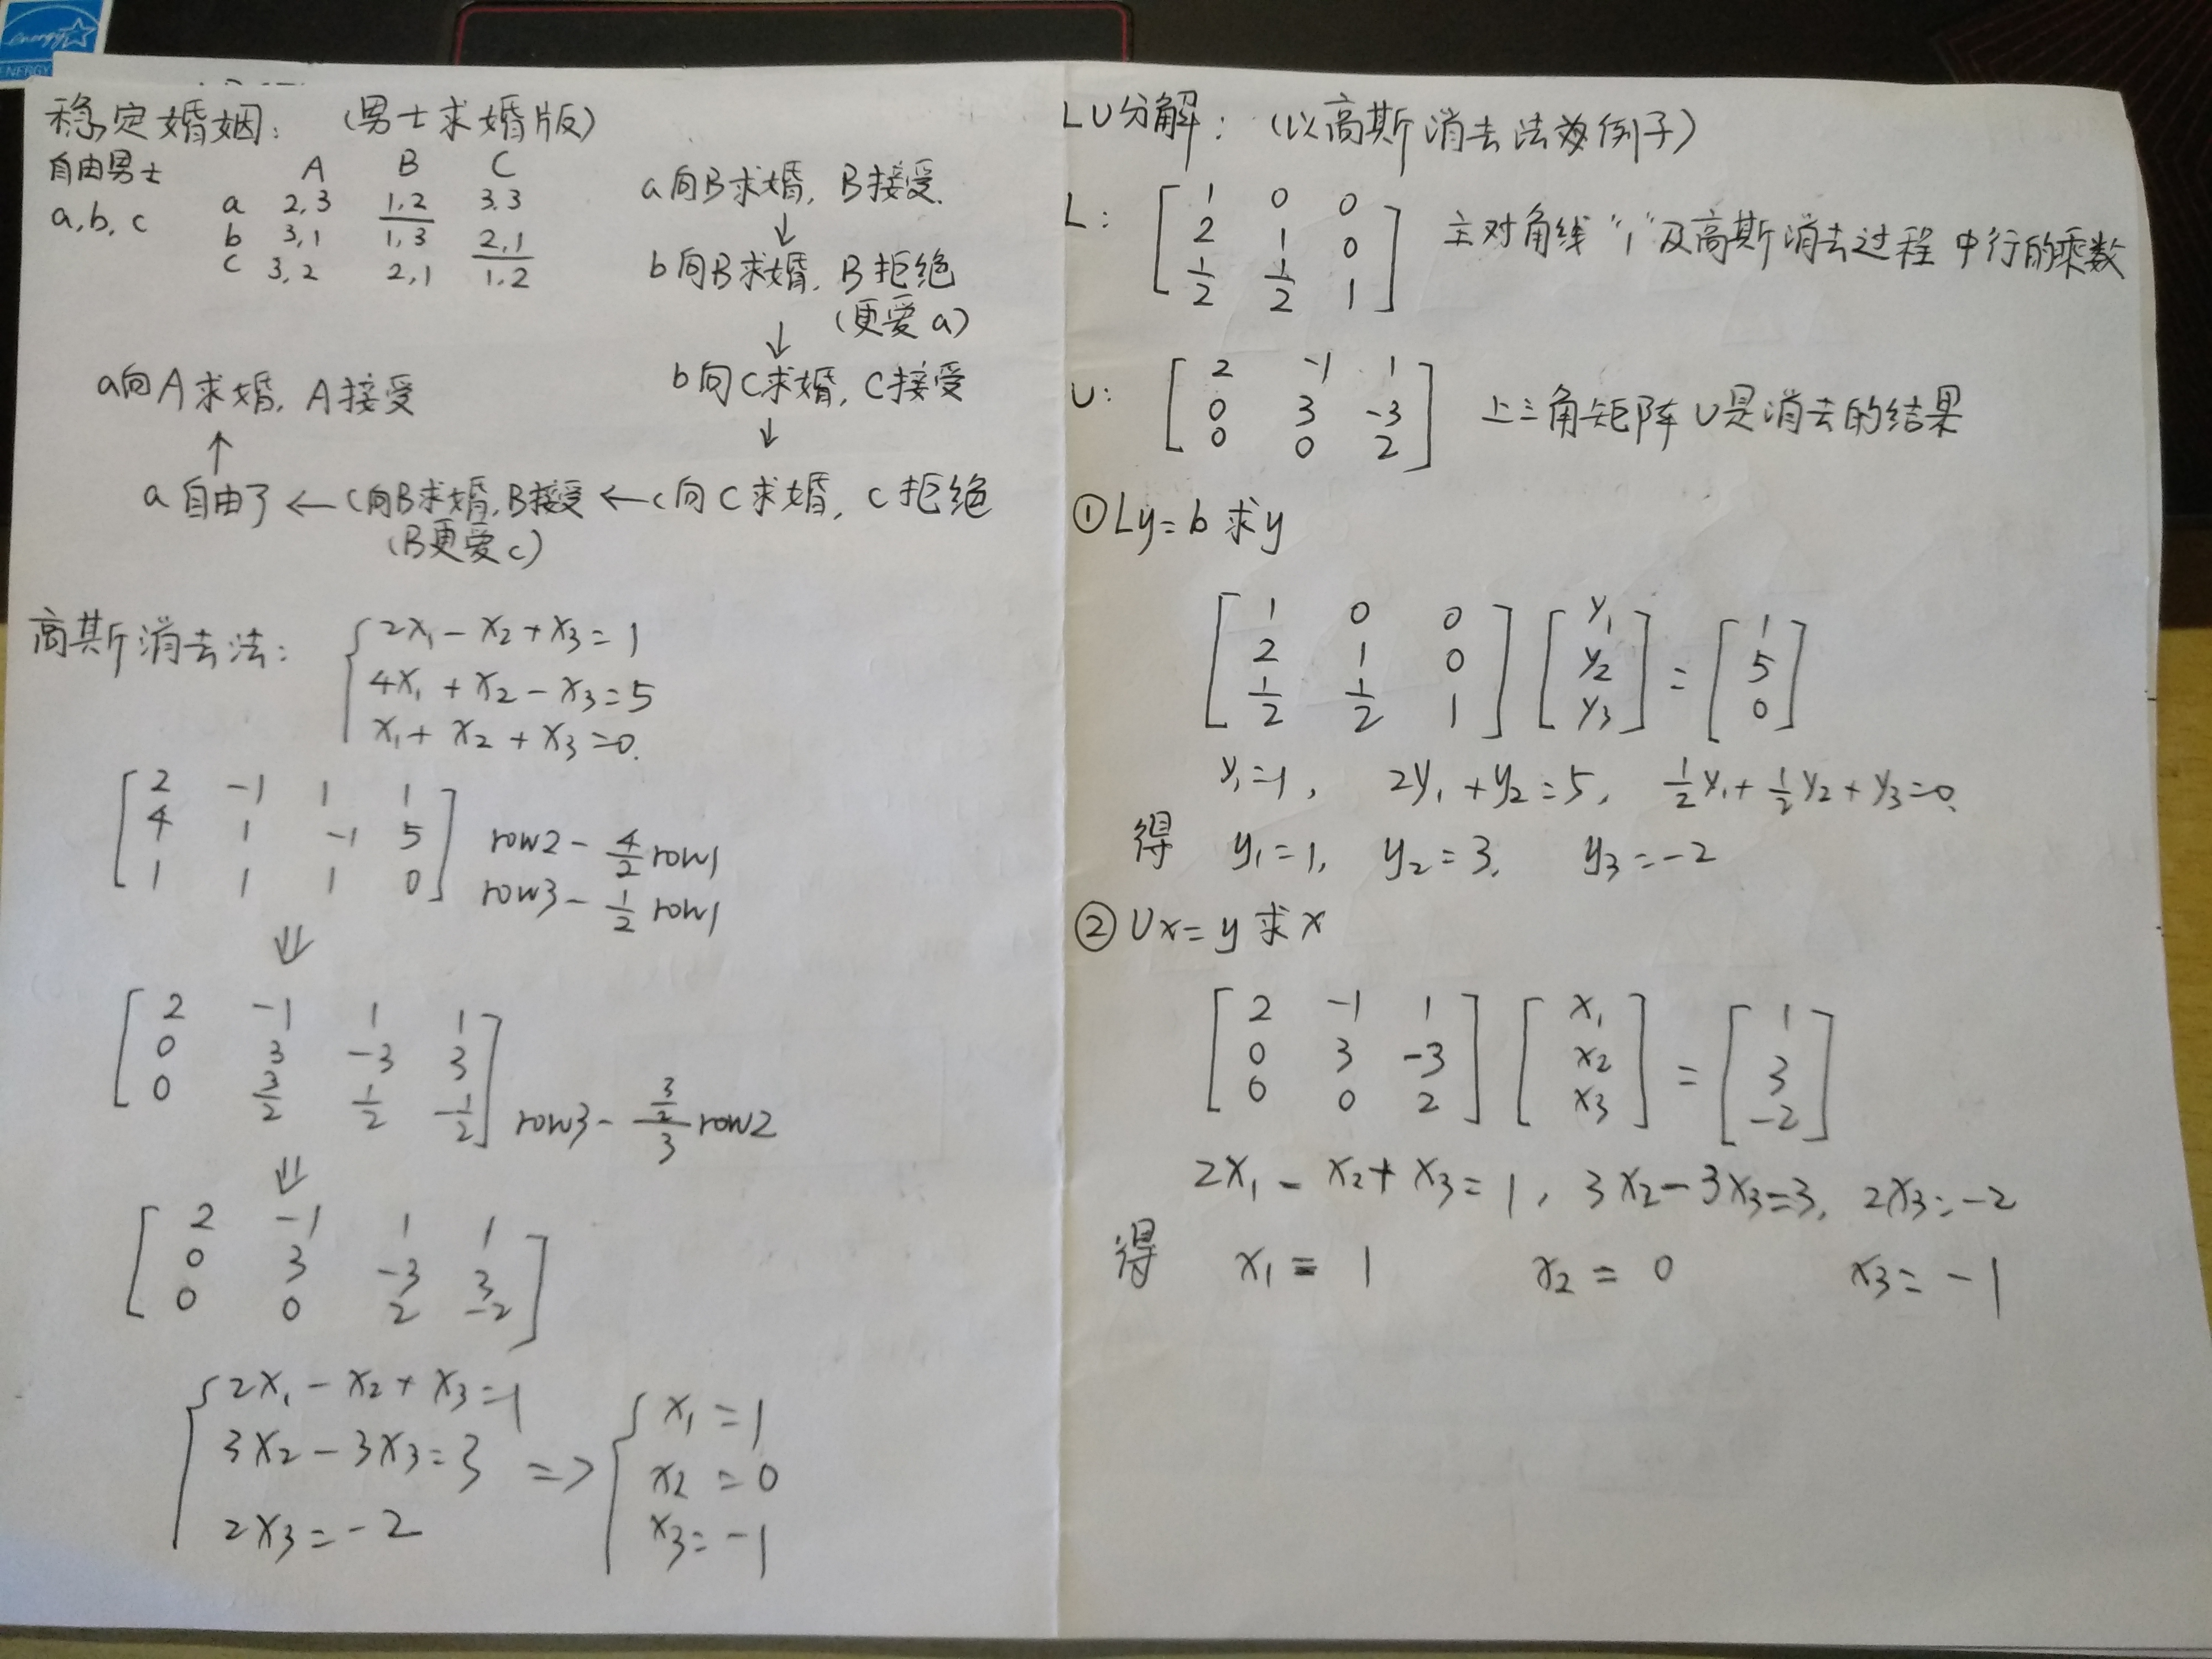 energy
ENERGY
稳定婚姻: (男士求婚版)
自由男士 A B C
a, b, c a 2,3 1,2 3,3
b 3,1 1,3 2,1
c 3,2 2,1 1,2
a向B求婚, B接受.
↓
b向B求婚, B拒绝
(更爱a)
↓
b向C求婚, C接受
↓
a向A求婚, A接受
↑
a自由了 ← c向B求婚, B接受 ← c向C求婚, C拒绝
(B更爱c)
高斯消去法:
2x₁ - x₂ + x₃ = 1
4x₁ + x₂ - x₃ = 5
x₁ + x₂ + x₃ = 0.
2 -1 1 1
4 1 -1 5 row2 - 4/2 row1
1 1 1 0 row3 - 1/2 row1
⇓
2 -1 1 1
0 3 -3 3
0 3/2 1/2 -1/2 row3 - (3/2)/3 row2
⇓
2 -1 1 1
0 3 -3 3
0 0 2 -2
2x₁ - x₂ + x₃ = 1
3x₂ - 3x₃ = 3
2x₃ = -2
=>
x₁ = 1
x₂ = 0
x₃ = -1
LU分解: (以高斯消去法为例子)
L:
1 0 0
2 1 0
1/2 1/2 1
主对角线"1"及高斯消去过程中行的乘数
U:
2 -1 1
0 3 -3
0 0 2
上三角矩阵U是消去的结果
① Ly = b 求y
1 0 0 y₁ 1
2 1 0 y₂ = 5
1/2 1/2 1 y₃ 0
y₁ = 1, 2y₁ + y₂ = 5, 1/2 y₁ + 1/2 y₂ + y₃ = 0.
得 y₁ = 1, y₂ = 3, y₃ = -2
② Ux = y 求x
2 -1 1 x₁ 1
0 3 -3 x₂ = 3
0 0 2 x₃ -2
2x₁ - x₂ + x₃ = 1, 3x₂ - 3x₃ = 3, 2x₃ = -2
得 x₁ = 1 x₂ = 0 x₃ = -1